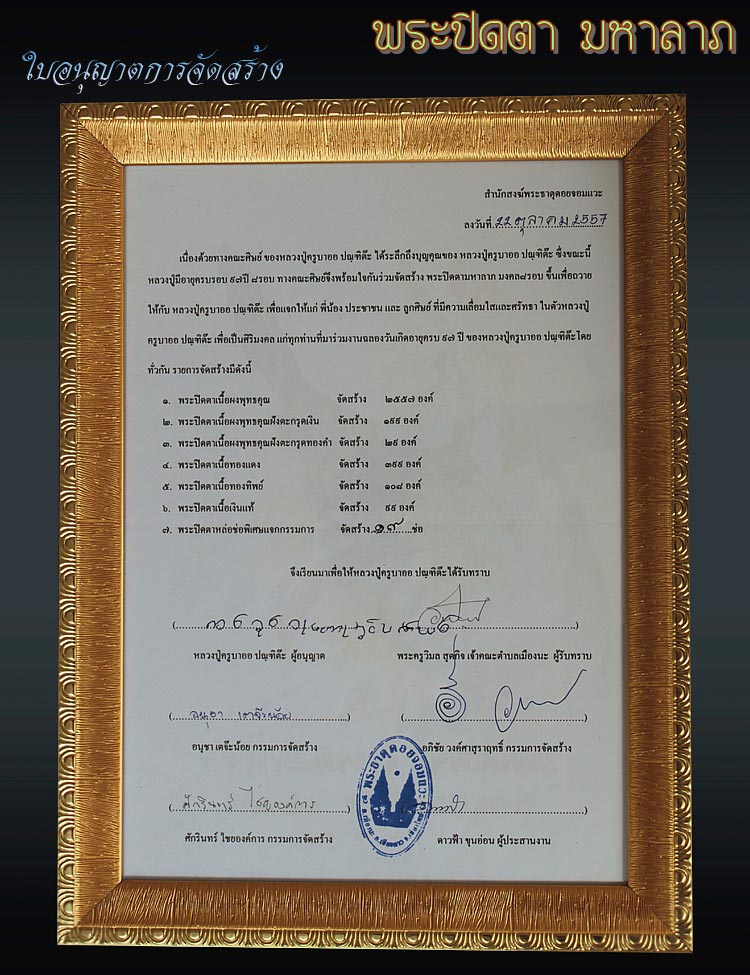 พระปิดตา มหาลาภ
ใบอนุญาตการจัดสร้าง
สำนักสงฆ์พระธาตุดอยจอมแวะ
ลงวันที่ 22 ตุลาคม 2557
เนื่องด้วยทางคณะศิษย์ ของหลวงปู่ครูบาออ ปณฺฑิต๊ะ ได้ระลึกถึงบุญคุณของ หลวงปู่ครูบาออ ปณฺฑิต๊ะ ซึ่งขณะนี้
หลวงปู่มีอายุครบรอบ ๙๗ปี ๘รอบ ทางคณะศิษย์จึงพร้อมใจกันร่วมจัดสร้าง พระปิดตามหาลาภ มงคล๘รอบ ขึ้นเพื่อถวาย
ให้กับ หลวงปู่ครูบาออ ปณฺฑิต๊ะ เพื่อแจกให้แก่ พี่น้อง ประชาชน และ ลูกศิษย์ ที่มีความเลื่อมใสและศรัทธา ในตัวหลวงปู่
ครูบาออ ปณฺฑิต๊ะ เพื่อเป็นศิริมงคล แก่ทุกท่านที่มาร่วมงานฉลองวันเกิดอายุครบ ๙๗ ปี ของหลวงปู่ครูบาออ ปณฺฑิต๊ะโดย
ทั่วกัน รายการจัดสร้างมีดังนี้
๑. พระปิดตาเนื้อผงพุทธคุณ จัดสร้าง ๒๕๕๗ องค์
๒. พระปิดตาเนื้อผงพุทธคุณฝังตะกรุดเงิน จัดสร้าง ๑๙๙ องค์
๓. พระปิดตาเนื้อผงพุทธคุณฝังตะกรุดทองคำ จัดสร้าง ๒๙ องค์
๔. พระปิดตาเนื้อทองแดง จัดสร้าง ๓๙๙ องค์
๕. พระปิดตาเนื้อทองทิพย์ จัดสร้าง ๑๐๘ องค์
๖. พระปิดตาเนื้อเงินแท้ จัดสร้าง ๙๙ องค์
๗. พระปิดตาหล่อช่อพิเศษแจกกรรมการ จัดสร้าง ๑๙ ช่อ
จึงเรียนมาเพื่อให้หลวงปู่ครูบาออ ปณฺฑิต๊ะได้รับทราบ
หลวงปู่ครูบาออ ปณฺฑิต๊ะ ผู้อนุญาต พระครูวิมล สุตกิจ เจ้าคณะตำบลเมืองนะ ผู้รับทราบ
(อนุชา เตจ๊ะน้อย)
อนุชา เตจ๊ะน้อย กรรมการจัดสร้าง อภิชัย วงศ์ศาสุราฤทธิ์ กรรมการจัดสร้าง
พระธาตุดอยจอมแวะ
(ศักรินทร์ ไชยองค์การ)
ศักรินทร์ ไชยองค์การ กรรมการจัดสร้าง ดาวฟ้า ขุนอ่อน ผู้ประสานงาน